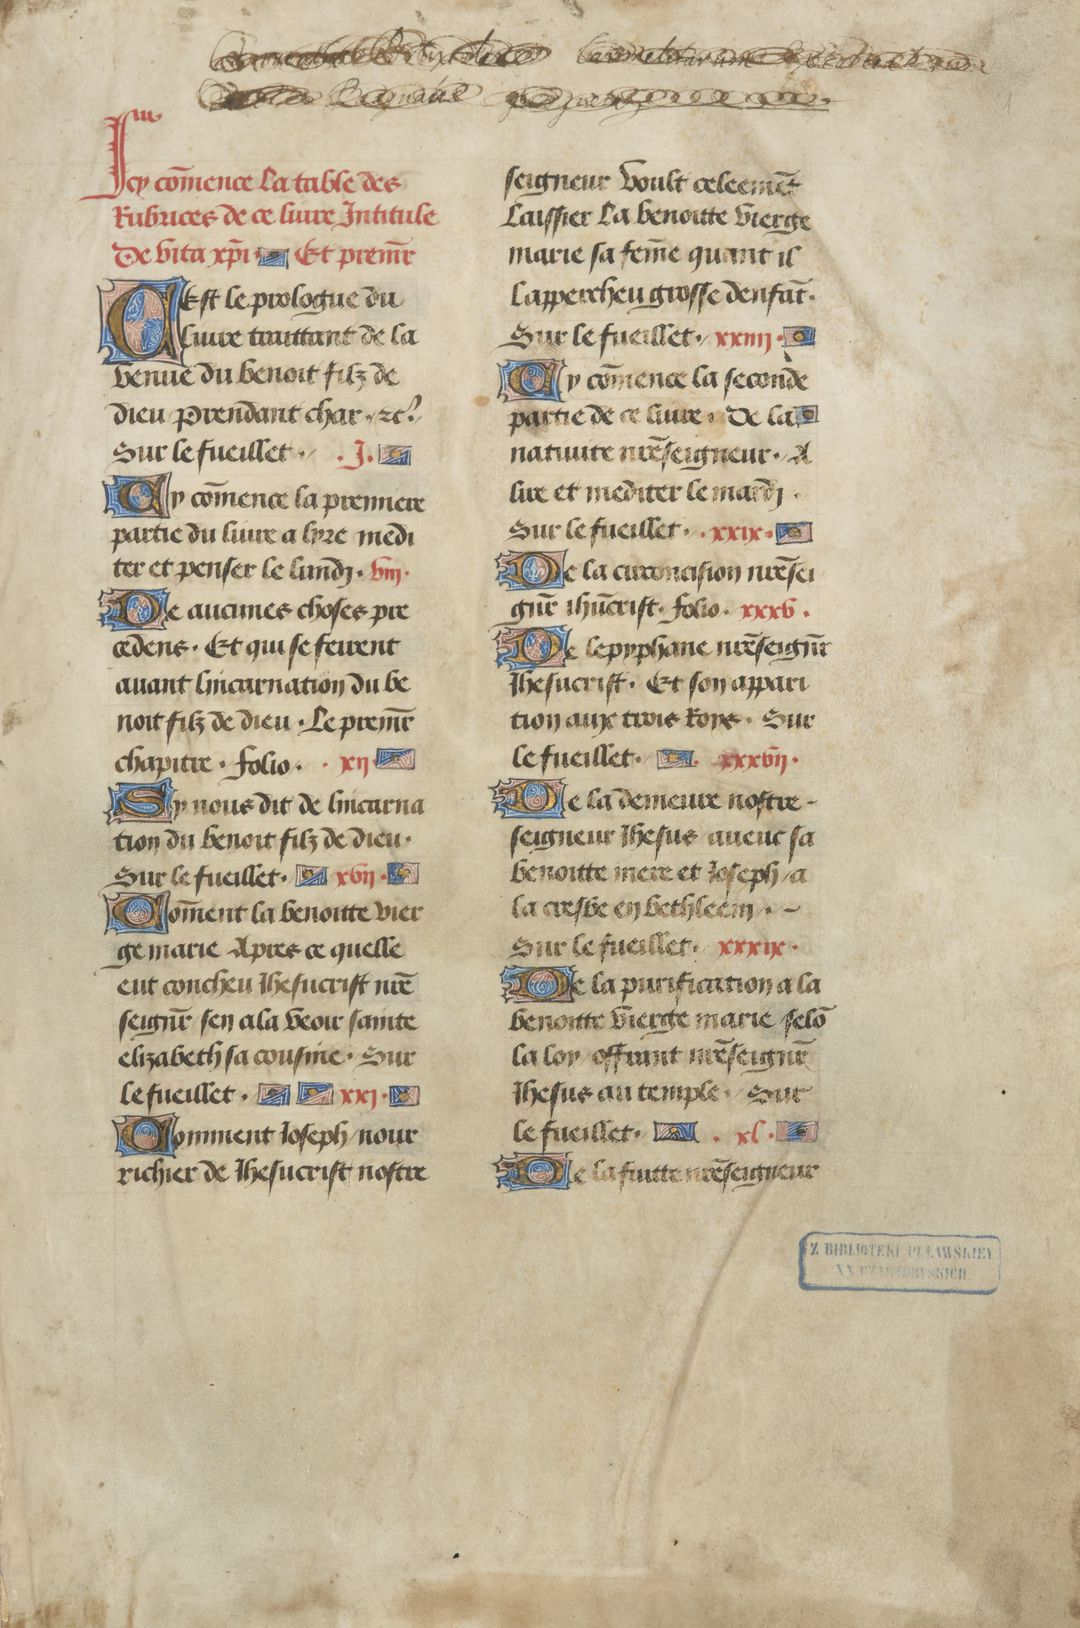 Icy cōmence la table des
Rubrices de ce liure Intitule
De vita xp̄i Et premr̄
Cest le prologue du
liure traittant de la
venue du benoit filz de
dieu prendant char ⁊c̃
Sur le fueillet · .J.
Cy cōmence la premiere
partie du liure a lyre medi
ter et penser le lundj · viij·
De aucunes choses pre
cedens · Et qui se feirent
auant lincarnation du be
noit filz de dieu · Le premr̄
chapitre · folio · · xij
Sy nous dit de lincarna
tion du benoit filz de dieu·
Sur le fueillet· xvij ·
Com̄ent la benoitte vier
ge marie Apres ce quelle
eut concheu Ihesucrist nr̄e
seignr̄ / sen ala veoir sainte
elizabeth sa cousine · Sur
le fueillet · xxj ·
Comment Joseph / nour
richier de Ihesucrist nostre
seigneur voult celeemēt
Laissier La benoitte vierge
marie sa fem̄e quant il
Lappercheu grosse denfāt·
Sur le fueillet · xxiiij ·
Cy cōmence la seconde
partie de ce liure · De la
natiuite nr̄e seigneur · A
lire et mediter le mardj ·
Sur le fueillet · · xxix ·
De la circoncision nr̄e sei
gnr̄ ihūcrist · folio · xxxv ·
De lepyphane nr̄e seignr̄
Ihesucrist · Et son appari
tion aux trois Roys · Sur
le fueillet · xxxvij ·
De la demeure nostre -
seigneur Ihesus aueuc sa
benoitte mere et Joseph / a
la cresbe en bethleem · ~
Sur le fueillet · xxxix ·
De la purification a la
benoitte vierge marie / selō
la loy / offrant nr̄e seignr̄
Ihesus au temple · Sur
le fueillet · · xl ·
De la fuitte nr̄e seigneur
Z BIBLIOTEKI PUŁAWSKIEY
XX CZARTORYSKICH